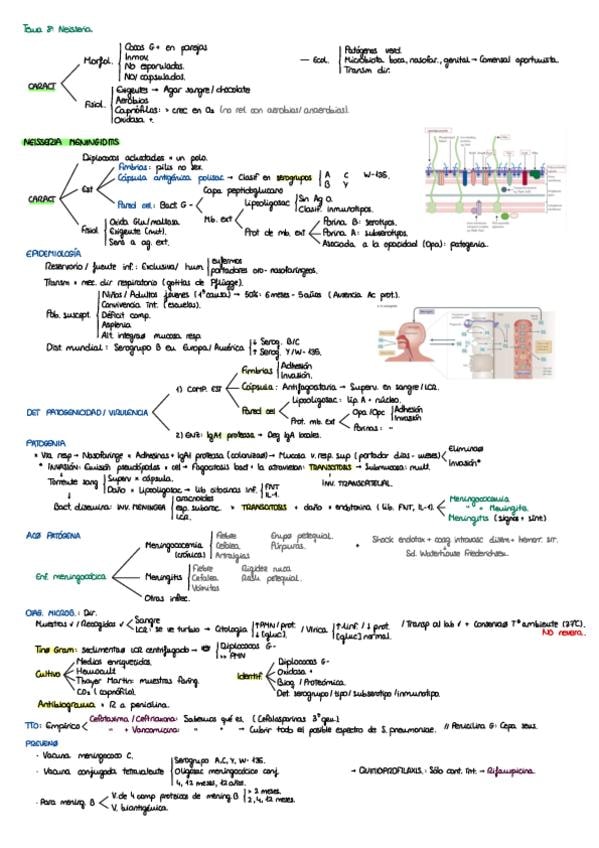 Tema 8: Neisseria.
CARACT
Morfol.
Cocos G+ en parejas
Inmov.
No esporulados.
No/ capsulados.
Ecol.
Patógenos verd.
Microbiota boca, nasofar., genital → Comensal oportunista.
Transm dir.
Fisiol.
Exigentes → Agar sangre / chocolate
Aerobios
Capnófilas: > crec en CO2 (no rel con aerobios/anaerobios).
Oxidasa +.
NEISSERIA MENINGITIDIS
CARACT
Diplococos achatados x un polo.
Est
Fimbrias: pilis no sex.
Cápsula antigénica polisac → Clasif en serogrupos
A C W-135.
B Y
Pared cel: Bact G-
Capa peptidoglucano
Mb. ext
Lipooligosac
Sin Ag O.
Clasif. inmunotipos.
Prot de mb. ext
Porina B: serotipos.
Porina A: subserotipos.
Asociada a la opacidad (Opa): patogenia.
Fisiol
Oxida Glu/maltosa.
Exigente (nut).
Sens a ag. ext.
EPIDEMIOLOGÍA
Reservorio / fuente inf.: Exclusiva/ hum
enfermos
portadores oro-nasofaríngeos.
Transm x mec. dir respiratorio (gotitas de Pflügge).
Pob. suscept.
Niños/ Adultos jóvenes (1ª causa) → 50%: 6 meses - 5 años (Ausencia Ac prot).
Convivencia int. (escuelas).
Déficit comp.
Asplenia
Alt. integridad mucosa resp.
Dist mundial: Serogrupo B en Europa/América
↓ Serog. B/C
↑ Serog. Y/W-135.
DET PATOGENICIDAD / VIRULENCIA
1) COMP. EST
Fimbrias
Adhesión
Invasión.
Cápsula: Antifagocitaria → Superv. en sangre/LCR.
Pared cel
Lipooligosac: lip. A + núcleo.
Prot. mb. ext
Opa/Opc
Adhesión
Invasión
Porinas: -
2) ENZ: IgA1 proteasa → Deg IgA locales.
PATOGENIA
* Vía resp → Nasofaringe x Adhesinas + IgA1 proteasa (colonización) → Mucosa v. resp. sup (portador días - meses)
Eliminac
Invasión*
* INVASIÓN: Emisión pseudópodos x cel → Fagocitosis bact + la atraviesan: TRANSCITOSIS → Submucosa: mult.
INV. TRANSCATELIAL.
Torrente sang
Superv x cápsula.
Daño x Lipooligosac → lib citocinas inf.
FNT
IL-1.
Bact disemina: INV. MENINGEA
aracnoides
esp. subarac.
LCR.
x TRANSCITOSIS + daño x endotoxina (lib. FNT, IL-1).
Meningococemia
" + Meningitis.
Meningitis (signos + sínt)
ACC PATÓGENA
Enf. meningocócica
Meningococemia
(crónicas)
Fiebre
Cefalea
Artralgias
Erupc petequial.
Púrpuras.
+ Shock endotox + coag intravasc disem + hemorr. sr.
Sd. Waterhouse Friderichsen.
Meningitis
Fiebre
Cefalea
Vómitos
Rigidez nuca
Rash petequial.
Otras infecc.
DIAG. MICROB.: Dir.
Muestras ✓ / Recogidas ✓
Sangre
LCR: se ve turbio → Citología
↑PMN/prot.
↓[gluc].
/ Vírica
↑Linf./↓ prot.
[gluc] normal.
/ Transp al lab ✓ + Conservac Tª ambiente (37ºC).
No nevera.
Tinc Gram: sedimentac LCR centrifugado →
Diplococos G-
>> PMN
Cultivo
Medios enriquecidos.
Hemocult
Thayer Martin: muestras faring.
CO2 (capnófila).
Identif.
Diplococos G-
Oxidasa +
Bioq / Proteómica.
Det. serogrupo/tipo/subserotipo/inmunotipo.
Antibiograma x R a penicilina.
TTO: Empírico
Cefotaxima / Ceftriaxona: Sabemos qué es. (Cefalosporinas 3ª gen.)
" + Vancomicina: " → Cubrir todo el posible espectro de S. pneumoniae.
// Penicilina G: Cepa sens.
PREVENC
· Vacuna meningococo C.
· Vacuna conjugada tetravalente
Serogrupo A, C, Y, W-135.
Oligosac meningocócico conj.
4, 12 meses, 12 años.
→ QUIMIOPROFILAXIS: Sólo cont. int: → Rifampicina.
· Para mening. B
V. de 4 comp proteicos de mening. B
> 2 meses.
2, 4, 12 meses.
V. biantigénica.